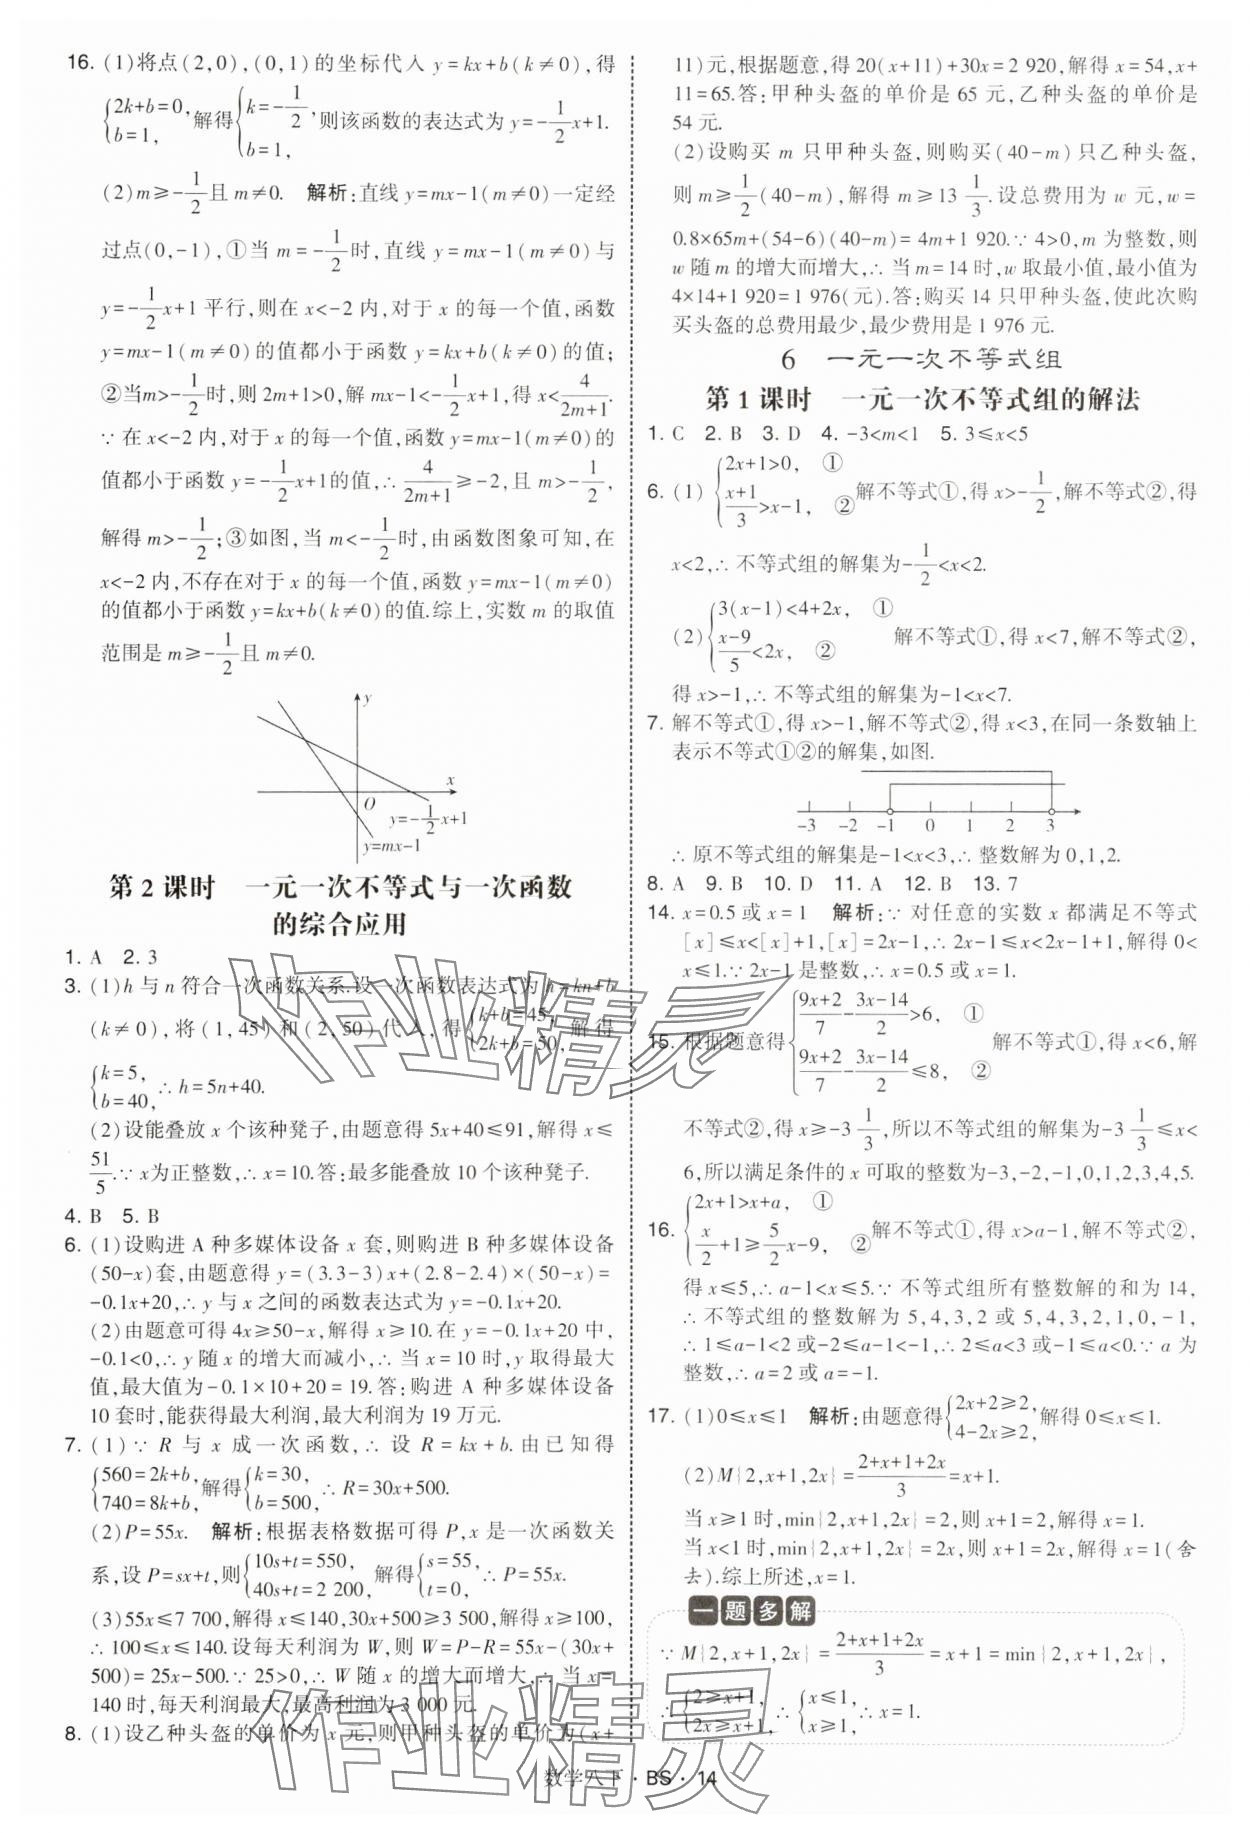 16. (1)将点(2,0),(0,1)的坐标代入 y=kx+b(k≠0),得
{2k+b=0, b=1, 解得{k=-1/2, b=1, 则该函数的表达式为 y=-1/2x+1.
(2)m≥-1/2且 m≠0. 解析:直线 y=mx-1(m≠0)一定经
过点(0,-1),①当 m=-1/2时,直线 y=mx-1(m≠0)与
y=-1/2x+1 平行,则在 x<-2 内,对于 x 的每一个值,函数
y=mx-1(m≠0)的值都小于函数 y=kx+b(k≠0)的值;
②当m>-1/2时,则 2m+1>0,解 mx-1<-1/2x+1,得 x<4/(2m+1).
∵在 x<-2 内,对于 x 的每一个值,函数 y=mx-1(m≠0)的
值都小于函数 y=-1/2x+1的值,∴4/(2m+1)≥-2,且 m>-1/2,
解得 m>-1/2;③如图,当 m<-1/2时,由函数图象可知,在
x<-2 内,不存在对于 x 的每一个值,函数 y=mx-1(m≠0)
的值都小于函数 y=kx+b(k≠0)的值.综上,实数 m 的取值
范围是 m≥-1/2且 m≠0.
y
x
O
y=-1/2x+1
y=mx-1
第 2 课时 一元一次不等式与一次函数
的综合应用
1. A 2. 3
3. (1)h 与 n 符合一次函数关系.设一次函数表达式为 h=kn+b
(k≠0),将(1,45)和(2,50)代入,得{k+b=45, 2k+b=50, 解得
{k=5, b=40, ∴h=5n+40.
(2)设能叠放 x 个该种凳子,由题意得 5x+40≤91,解得 x≤
51/5.∵x为正整数,∴x=10.答:最多能叠放 10 个该种凳子.
4. B 5. B
6. (1)设购进 A 种多媒体设备 x 套,则购进 B 种多媒体设备
(50-x)套,由题意得 y=(3.3-3)x+(2.8-2.4)×(50-x)=
-0.1x+20,∴y 与 x 之间的函数表达式为 y=-0.1x+20.
(2)由题意可得 4x≥50-x,解得 x≥10.在 y=-0.1x+20 中,
-0.1<0,∴y 随 x 的增大而减小,∴当 x=10 时,y 取得最大
值,最大值为-0.1×10+20=19.答:购进 A 种多媒体设备
10 套时,能获得最大利润,最大利润为 19 万元.
7. (1)∵R 与 x 成一次函数,∴设 R=kx+b.由已知得
{560=2k+b, 740=8k+b, 解得{k=30, b=500, ∴R=30x+500.
(2)P=55x. 解析:根据表格数据可得 P,x 是一次函数关
系,设 P=sx+t,则{10s+t=550, 40s+t=2 200, 解得{s=55, t=0, ∴P=55x.
(3)55x≤7 700,解得 x≤140,30x+500≥3 500,解得 x≥100,
∴100≤x≤140.设每天利润为 W,则 W=P-R=55x-(30x+
500)=25x-500.∵25>0,∴W 随 x 的增大而增大,∴当 x=
140 时,每天利润最大,最高利润为 3 000 元.
8. (1)设乙种头盔的单价为 x 元,则甲种头盔的单价为(x+
11)元,根据题意,得 20(x+11)+30x=2 920,解得 x=54,x+
11=65.答:甲种头盔的单价是 65 元,乙种头盔的单价是
54 元.
(2)设购买 m 只甲种头盔,则购买(40-m)只乙种头盔,
则 m≥1/2(40-m),解得 m≥13 1/3.设总费用为 w 元,w=
0.8×65m+(54-6)(40-m)=4m+1 920.∵4>0,m 为整数,则
w 随 m 的增大而增大,∴当 m=14 时,w 取最小值,最小值为
4×14+1 920=1 976(元).答:购买 14 只甲种头盔,使此次购
买头盔的总费用最少,最少费用是 1 976 元.
6 一元一次不等式组
第 1 课时 一元一次不等式组的解法
1. C 2. B 3. D 4. -3<m<1 5. 3≤x<5
6. (1){2x+1>0, ① (x+1)/3>x-1, ② 解不等式①,得 x>-1/2,解不等式②,得
x<2,∴不等式组的解集为-1/2<x<2.
(2){3(x-1)<4+2x, ① (x-9)/5<2x, ② 解不等式①,得 x<7,解不等式②,
得 x>-1,∴不等式组的解集为-1<x<7.
7. 解不等式①,得 x>-1,解不等式②,得 x<3,在同一条数轴上
表示不等式①②的解集,如图.
-3 -2 -1 0 1 2 3
∴原不等式组的解集是-1<x<3,∴整数解为 0,1,2.
8. A 9. B 10. D 11. A 12. B 13. 7
14. x=0.5 或 x=1 解析:∵对任意的实数 x 都满足不等式
[x]≤x<[x]+1,[x]=2x-1,∴2x-1≤x<2x-1+1,解得 0<
x≤1.∵2x-1 是整数,∴x=0.5 或 x=1.
15. 根据题意得{(9x+2)/7-(3x-14)/2>6, ① (9x+2)/7-(3x-14)/2≤8, ② 解不等式①,得 x<6,解
不等式②,得 x≥-3 1/3,所以不等式组的解集为-3 1/3≤x<
6,所以满足条件的 x 可取的整数为-3,-2,-1,0,1,2,3,4,5.
16. {2x+1>x+a, ① x/2+1≥5/2x-9, ② 解不等式①,得 x>a-1,解不等式②,
得 x≤5,∴a-1<x≤5.∵不等式组所有整数解的和为 14,
∴不等式组的整数解为 5,4,3,2 或 5,4,3,2,1,0,-1,
∴1≤a-1<2 或-2≤a-1<-1,∴2≤a<3 或-1≤a<0.∵a 为
整数,∴a=2 或 a=-1.
17. (1)0≤x≤1 解析:由题意得{2x+2≥2, 4-2x≥2, 解得 0≤x≤1.
(2)M{2,x+1,2x}=(2+x+1+2x)/3=x+1.
当 x≥1 时,min{2,x+1,2x}=2,则 x+1=2,解得 x=1.
当 x<1 时,min{2,x+1,2x}=2x,则 x+1=2x,解得 x=1(舍
去).综上所述,x=1.
一题多解
∵M{2,x+1,2x}=(2+x+1+2x)/3=x+1=min{2,x+1,2x},
∴{2≥x+1, 2x≥x+1, ∴{x≤1, x≥1, ∴x=1.
数学八下·BS·14
作业精灵
作业精灵